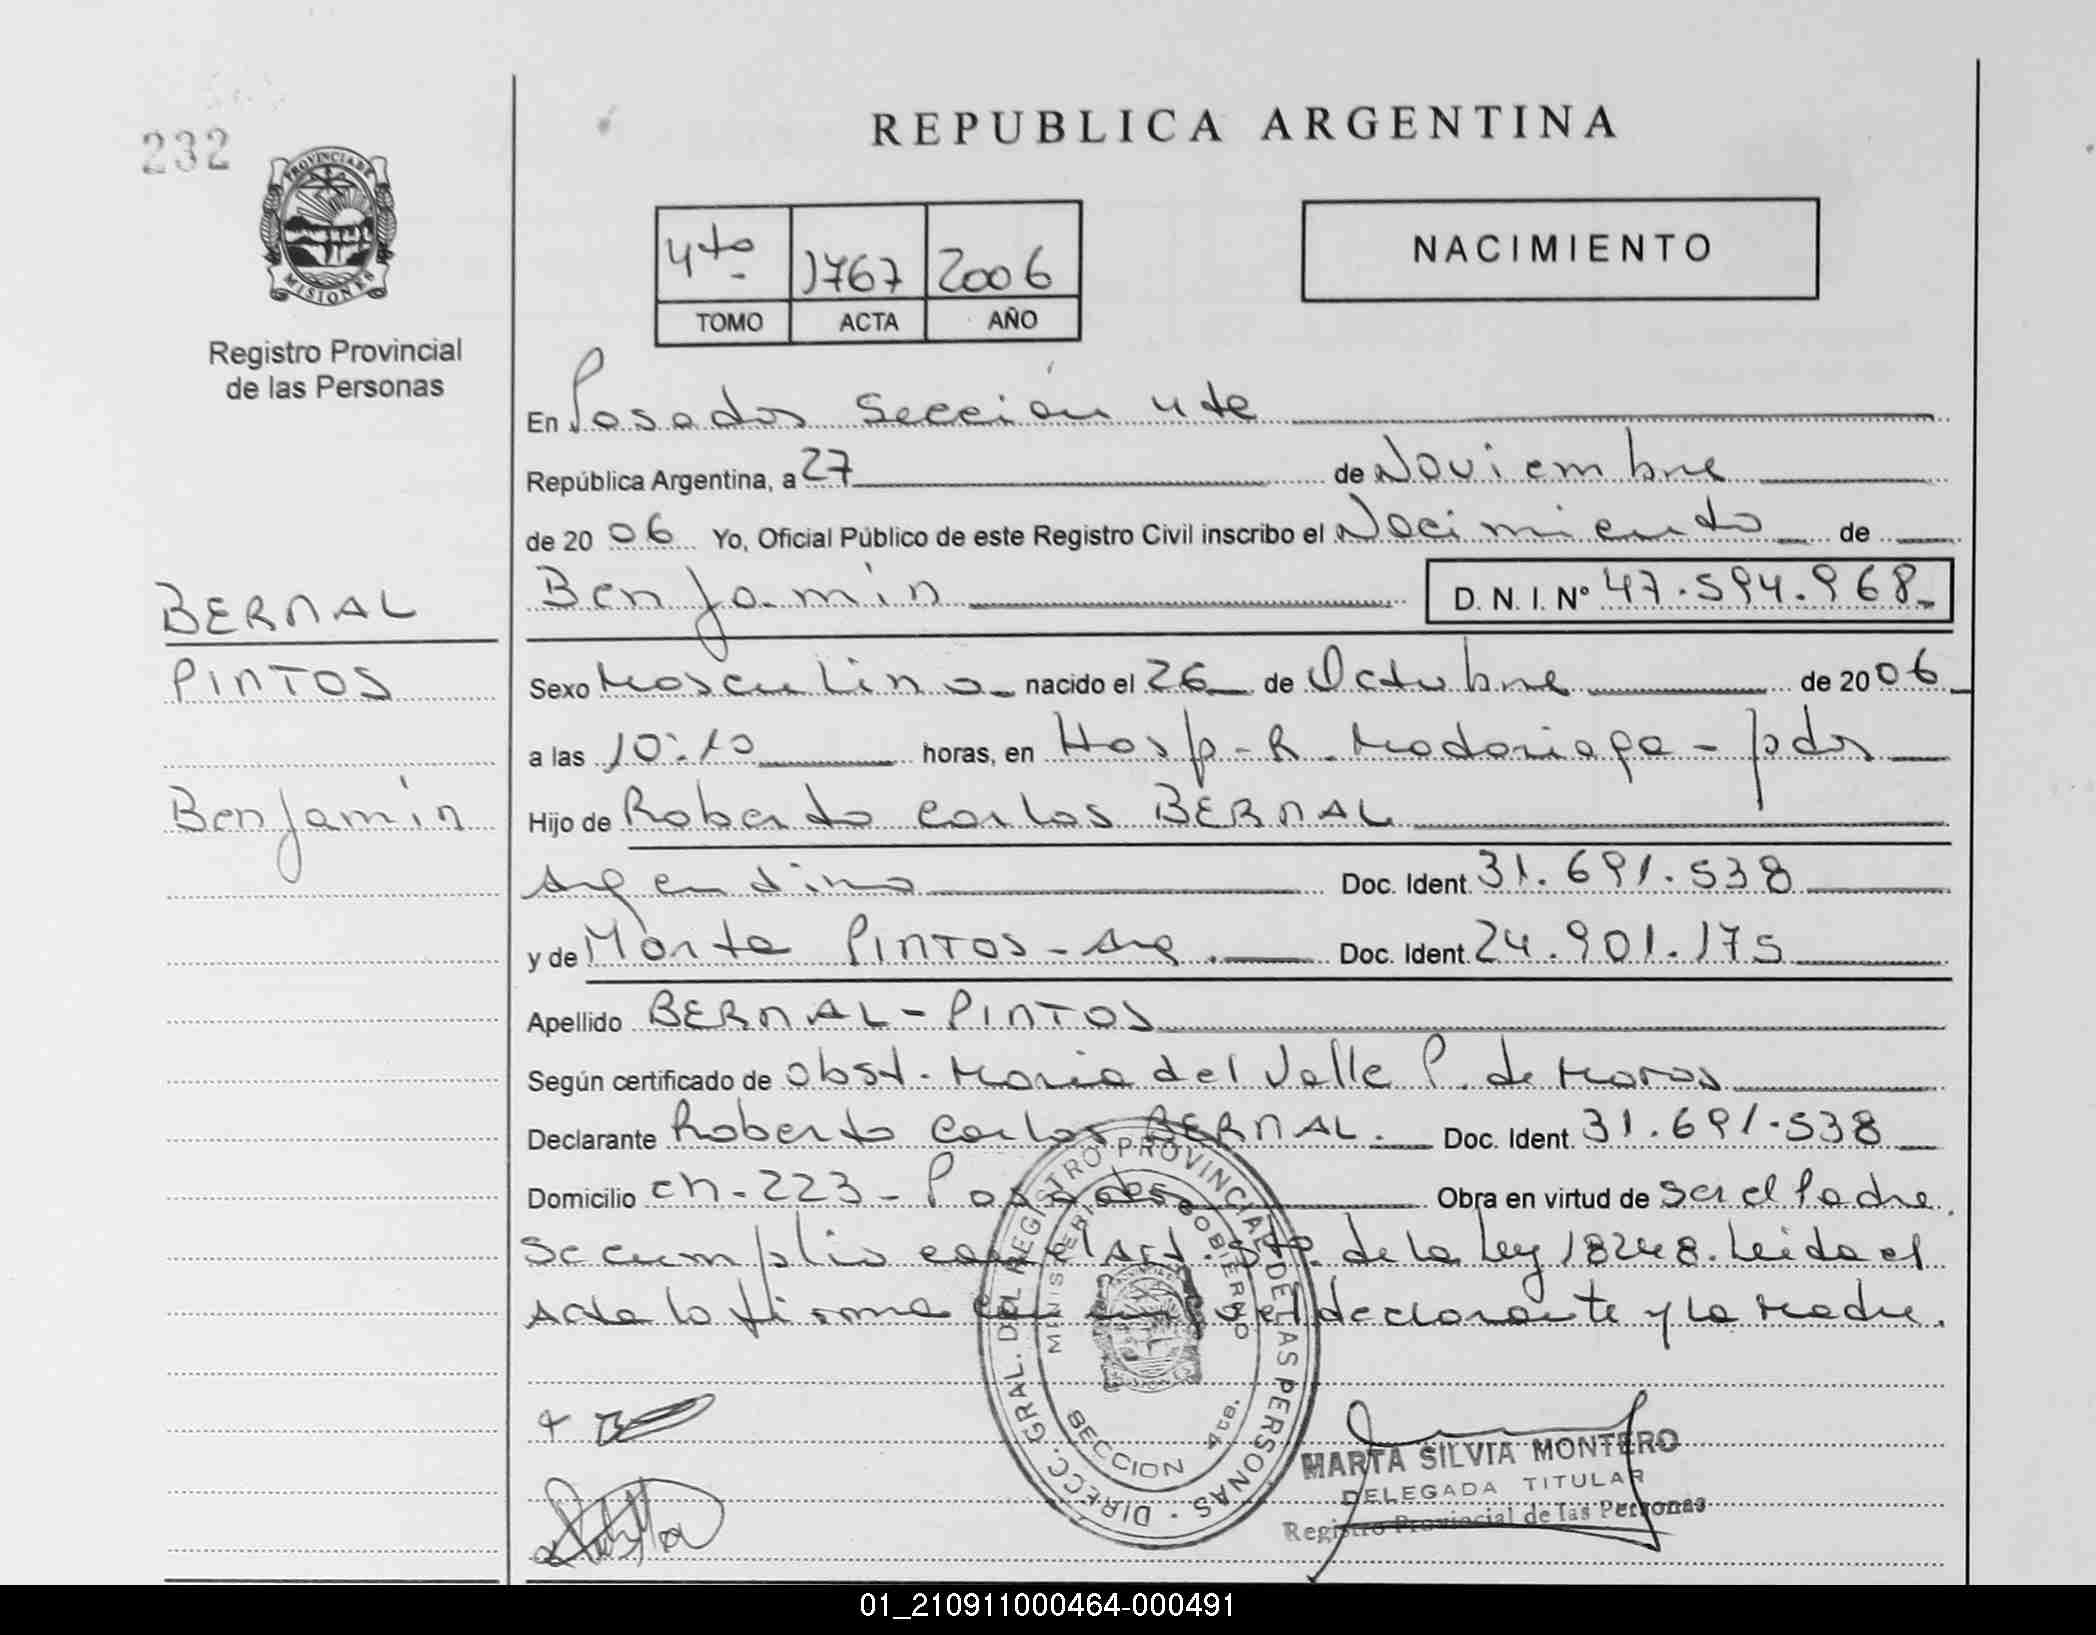 232
PROVINCIA DE
MISIONES
Registro Provincial
de las Personas
BERNAL
PINTOS
Benjamín
REPUBLICA ARGENTINA
4to 1767 2006
TOMO ACTA AÑO
NACIMIENTO
En Posadas Sección 4ta
República Argentina, a 27 de Noviembre
de 2006 Yo, Oficial Público de este Registro Civil inscribo el Nacimiento de
Benjamín D. N. I. Nº 47.594.968
Sexo Masculino nacido el 26 de Octubre de 2006
a las 10:10 horas, en Hosp - R. Madariaga - pdas
Hijo de Roberto Carlos BERNAL
Argentino Doc. Ident. 31.691.538
y de Marta PINTOS - Arg. Doc. Ident. 24.901.175
Apellido BERNAL - PINTOS
Según certificado de Obst. Maria del Valle P. de Moras
Declarante Roberto Carlos BERNAL. Doc. Ident. 31.691.538
Domicilio Ch - 223 - Posadas Obra en virtud de ser el Padre.
Se cumplio con el Art. 5to. de la Ley 18248. Leida el
Acta la firma el declarante y la Madre.
DIRECC. GRAL. DEL REGISTRO PROVINCIAL DE LAS PERSONAS
MINISTERIO DE GOBIERNO
SECCION 4ta.
MARTA SILVIA MONTERO
DELEGADA TITULAR
Registro Provincial de las Personas
01_210911000464-000491